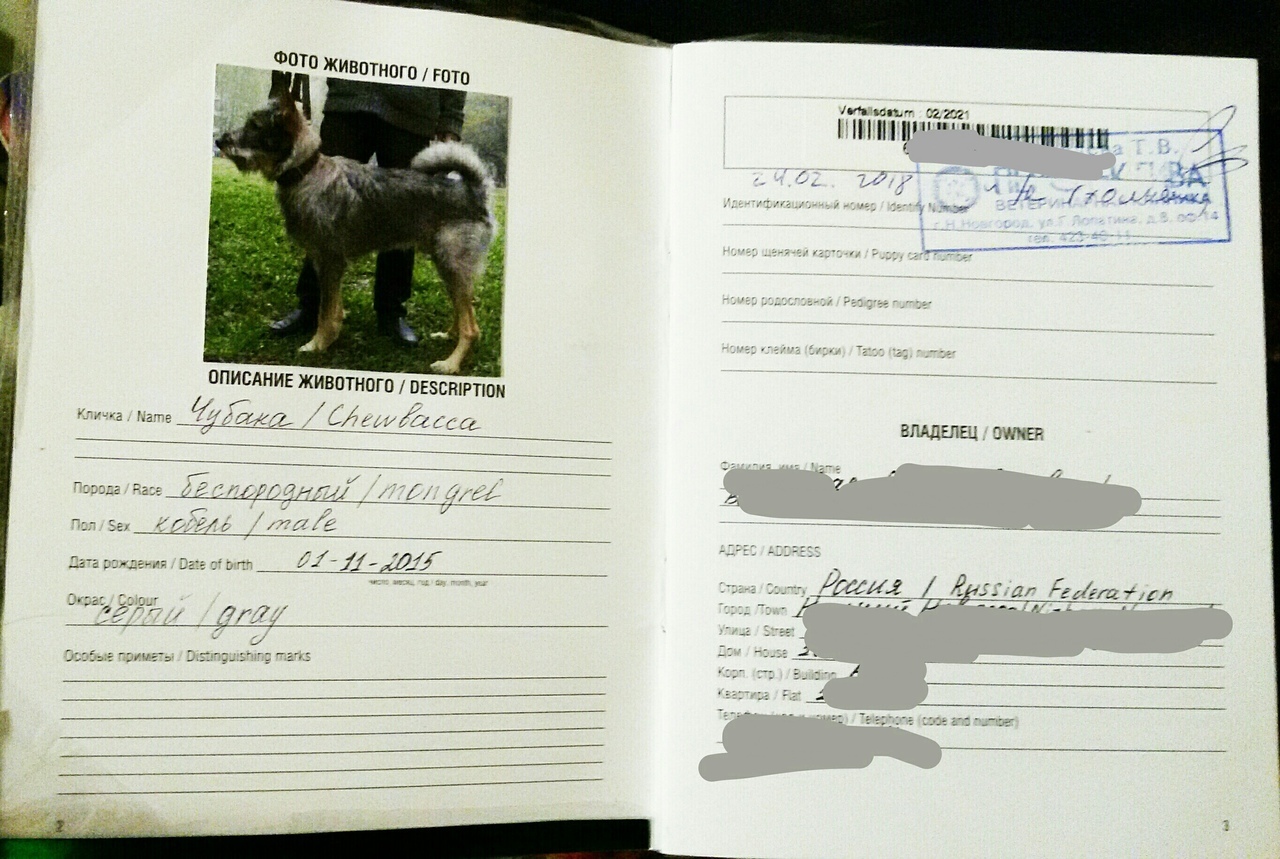 ФОТО ЖИВОТНОГО / FOTO
ОПИСАНИЕ ЖИВОТНОГО / DESCRIPTION
Кличка / Name Чубака / Chewbacca
Порода / Race беспородный / mongrel
Пол / Sex кобель / male
Дата рождения / Date of birth 01-11-2015
число, месяц, год / day, month, year
Окрас / Colour
серый / gray
Особые приметы / Distinguishing marks
2
Verfallsdatum : 02/2021
Т.В.
24.02. 2018
Идентификационный номер / Identity Number
г.Н.Новгород, ул.Г.Лопатина, д.8, оф.14
тел. 423-40-11
Номер щенячей карточки / Puppy card number
Номер родословной / Pedigree number
Номер клейма (бирки) / Tatoo (tag) number
ВЛАДЕЛЕЦ / OWNER
Фамилия, имя / Name
АДРЕС / ADDRESS
Страна / Country Россия / Russian Federation
Город /Town
Улица / Street
Дом / House
Корп. (стр.) / Building
Квартира / Flat
/ Telephone (code and number)
3